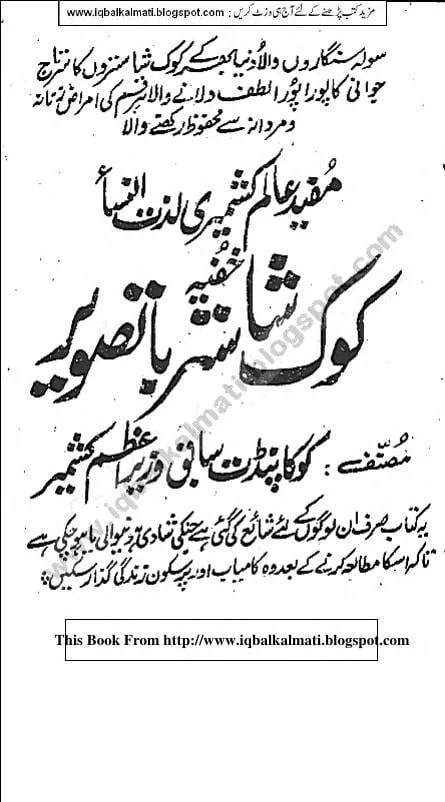 مزید کتب پڑھنے کے لئے آج ہی وزٹ کریں : www.iqbalkalmati.blogspot.com
سولہ سنگاروں والا دُنیا بھر کے کوک شاستروں کا سرتاج
جوانی کا پورا پُورا لطف دلانے والا ہر قسم کی امراض زنانہ
و مردانہ سے محفوظ رکھنے والا
مُفید عالم کشمیری لذت النسأ
خُفیہ
کوک شاستر باتصویر
مُصنّفہ : کوکا پنڈت سابق وزیر اعظم کشمیر
یہ کتاب صرف ان لوگوں کے لئے شائع کی گئی ہے جنکی شادی ہونیوالی یا ہو چکی ہے
تاکہ اسکا مطالعہ کرنے کے بعد وہ کامیاب اور پُرسکون زندگی گذار سکیں
www.iqbalkalmati.blogspot.com
This Book From http://www.iqbalkalmati.blogspot.com